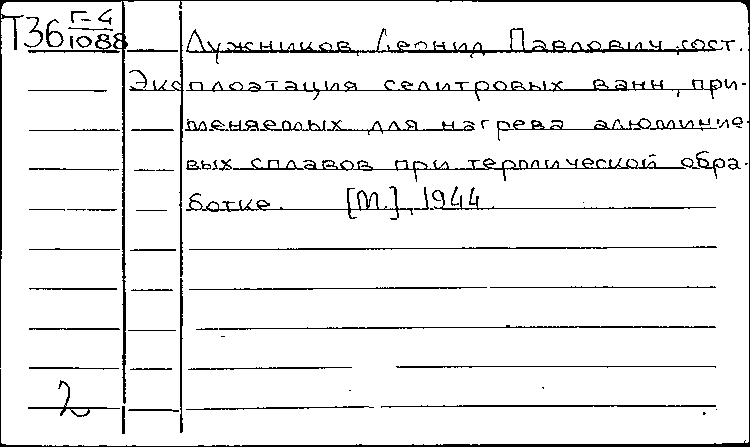 Т36 Г-4
1088
Лужников, Леонид Павлович, сост.
Эксплоатация селитровых ванн, при-
меняемых для нагрева алюминие-
вых сплавов при термической обра-
ботке. [М.], 1944.
2